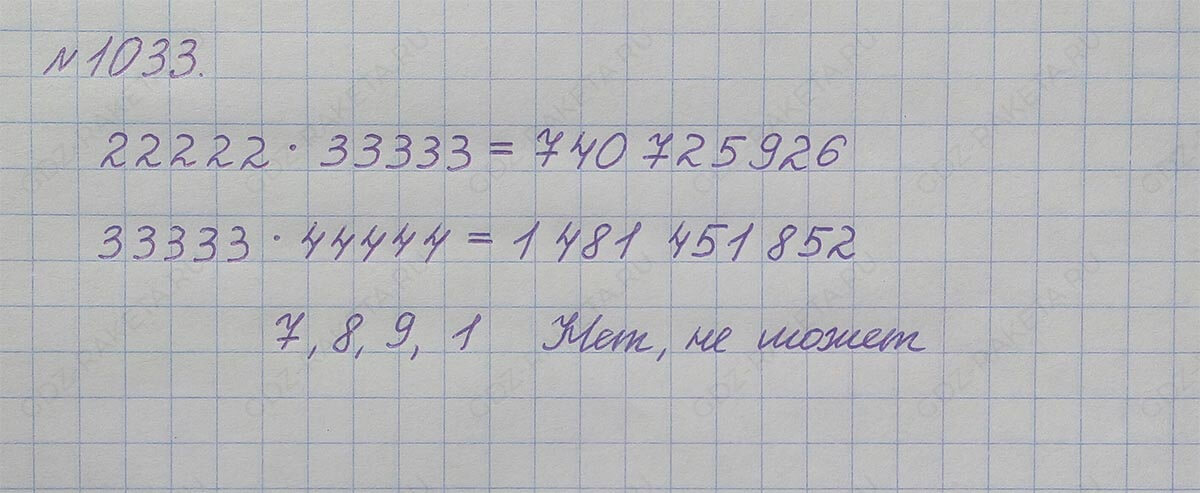 №1033.
22222 · 33333 = 740 725 926
33333 · 44444 = 1 481 451 852
7, 8, 9, 1 Нет, не может